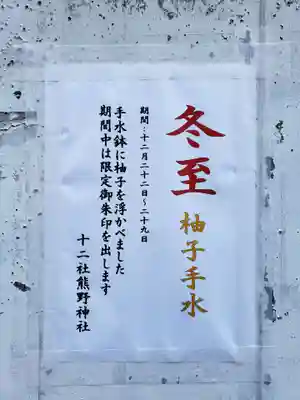 冬至
柚子手水
期間：十二月二十二日～二十九日
手水鉢に柚子を浮かべました
期間中は限定御朱印を出します
十二社熊野神社